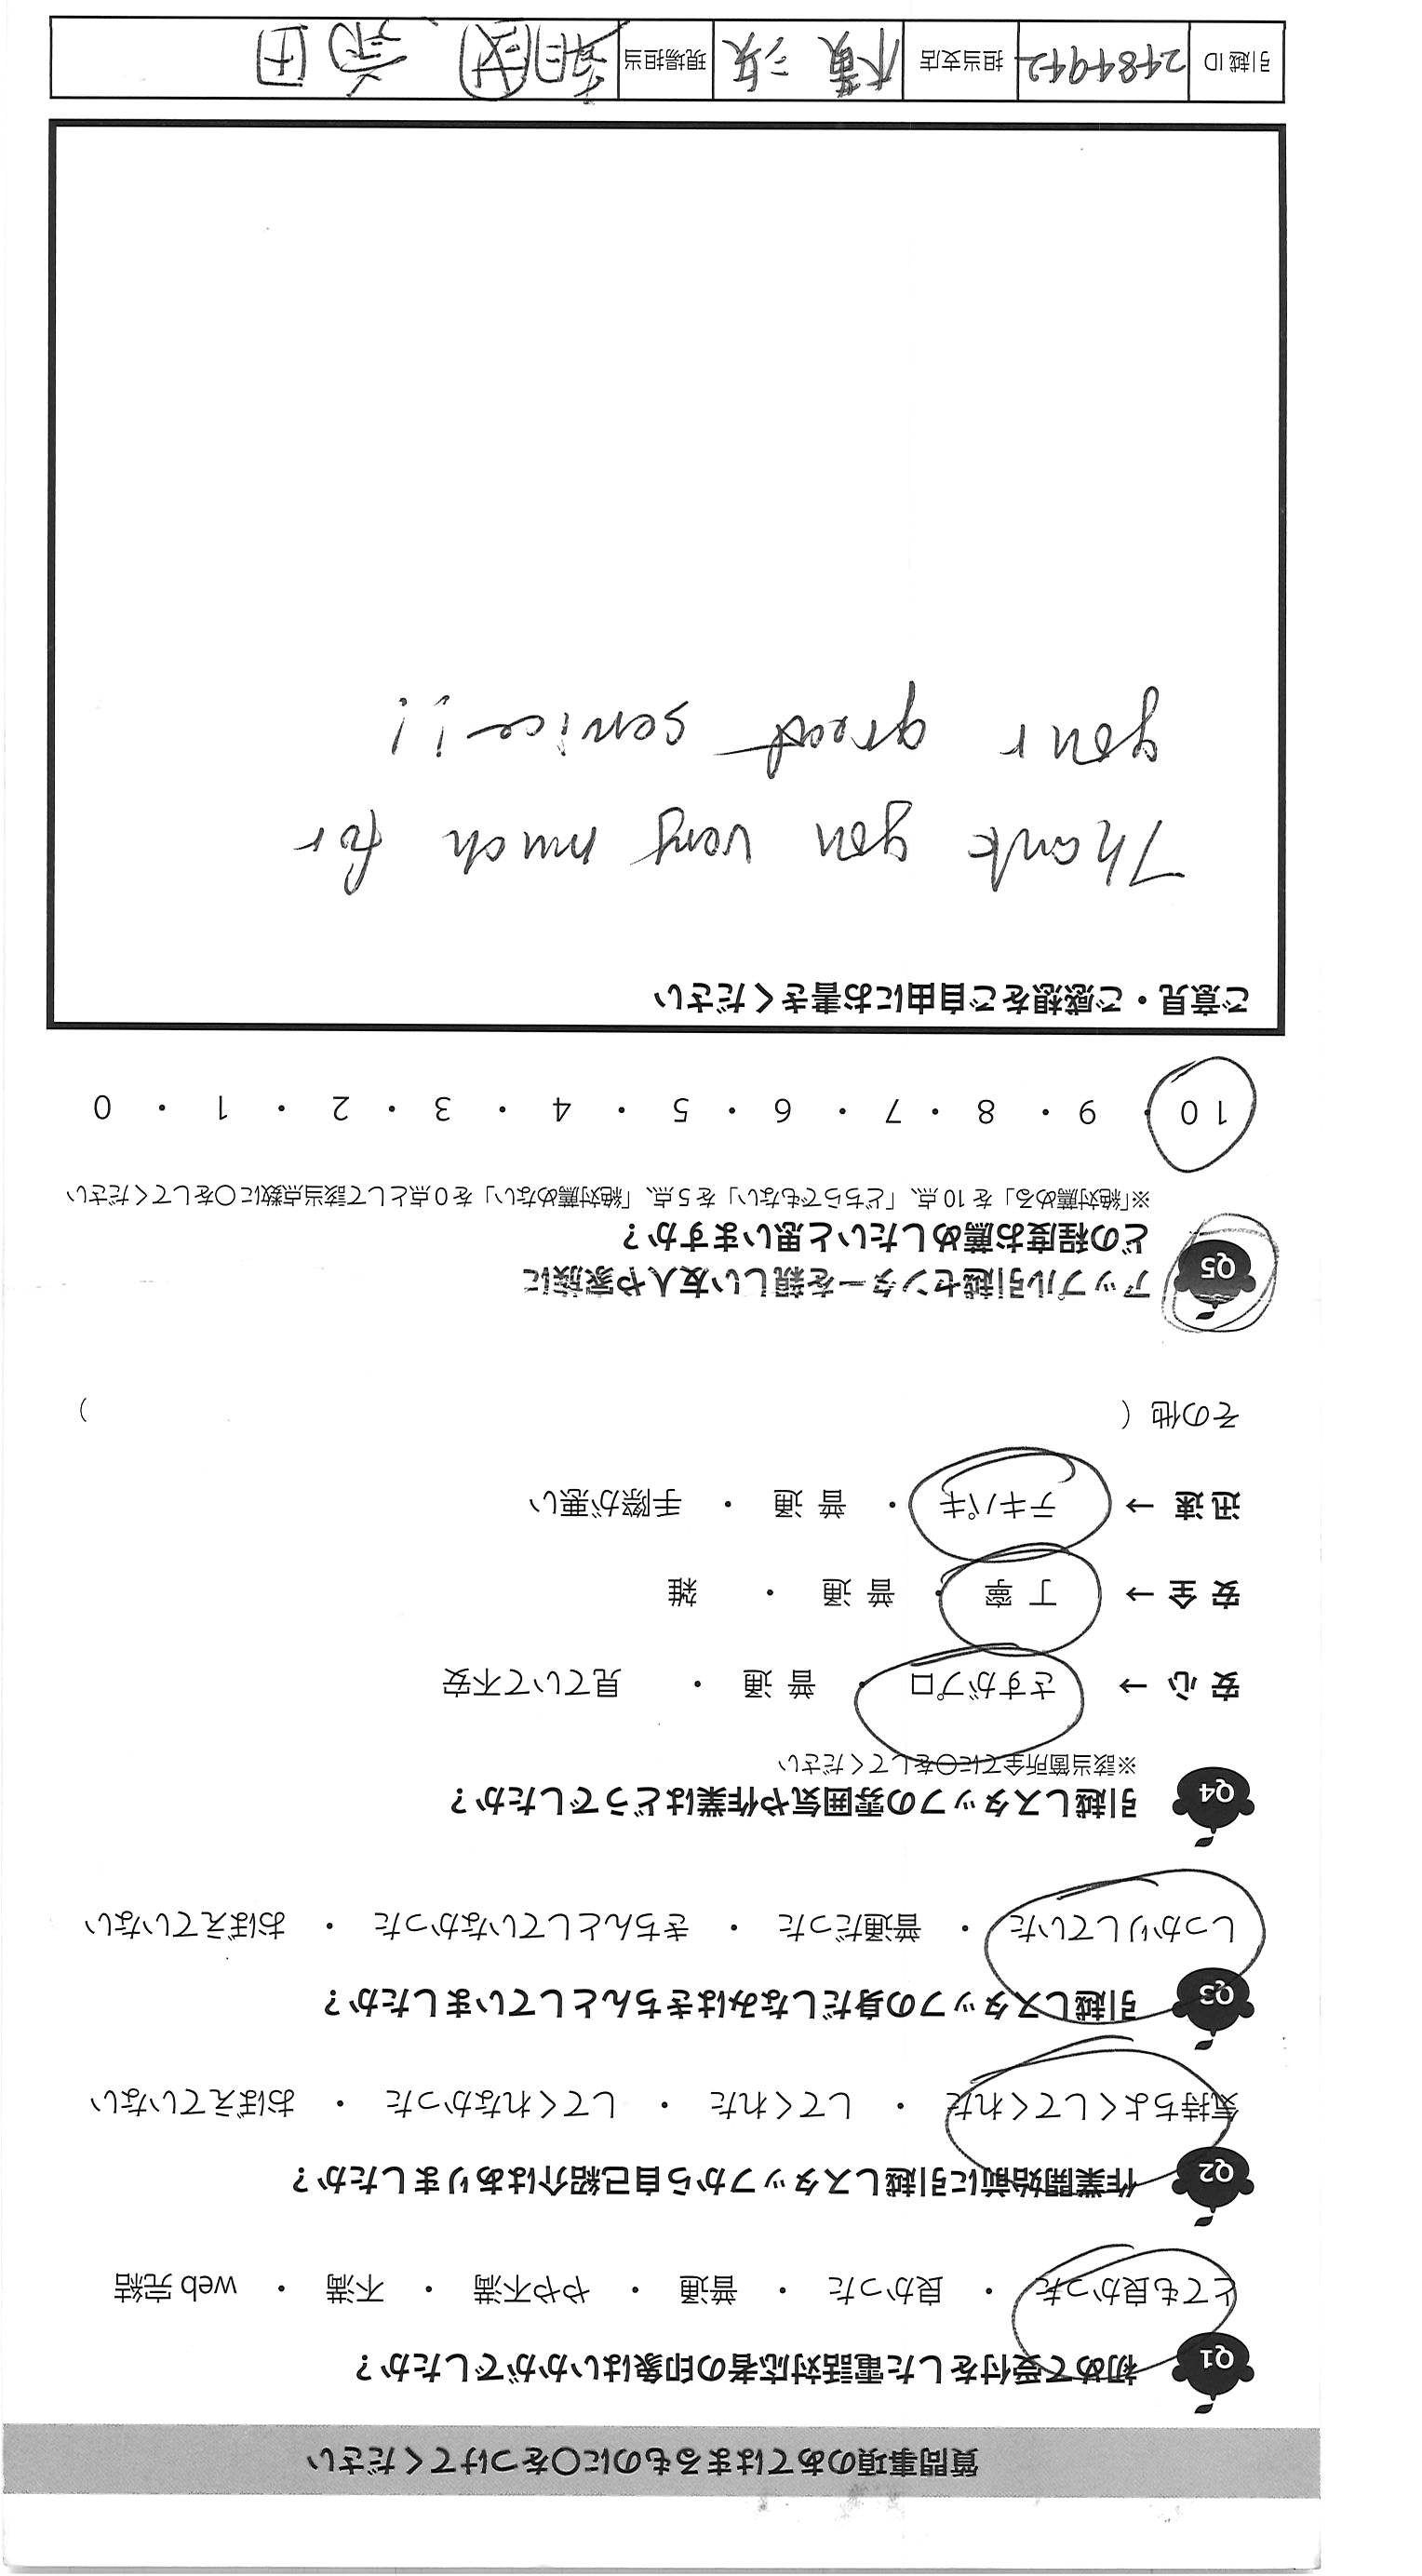 質問事項のあてはまるものに○をつけてください
Q1 初めて受付をした電話対応者の印象はいかがでしたか？
とても良かった ・ 良かった ・ 普通 ・ やや不満 ・ 不満 ・ web 完結
Q2 作業開始前に引越しスタッフから自己紹介はありましたか？
気持ちよくしてくれた ・ してくれた ・ してくれなかった ・ おぼえていない
Q3 引越しスタッフの身だしなみはきちんとしていましたか？
しっかりしていた ・ 普通だった ・ きちんとしていなかった ・ おぼえていない
Q4 引越しスタッフの雰囲気や作業はどうでしたか？
※該当箇所全てに○をしてください
安 心 → さすがプロ ・ 普 通 ・ 見ていて不安
安 全 → 丁 寧 ・ 普 通 ・ 雑
迅 速 → テキパキ ・ 普 通 ・ 手際が悪い
その他（ ）
Q5 アップル引越センターを親しい友人や家族に
どの程度お薦めしたいと思いますか？
※「絶対薦める」を 10 点、「どちらでもない」を 5 点、「絶対薦めない」を 0 点として該当点数に○をしてください
10 ・ 9 ・ 8 ・ 7 ・ 6 ・ 5 ・ 4 ・ 3 ・ 2 ・ 1 ・ 0
ご意見・ご感想をご自由にお書きください
Thank you very much for
your great service!!
引越 ID 2484942 担当支店 横浜 現場担当 朝国、 田